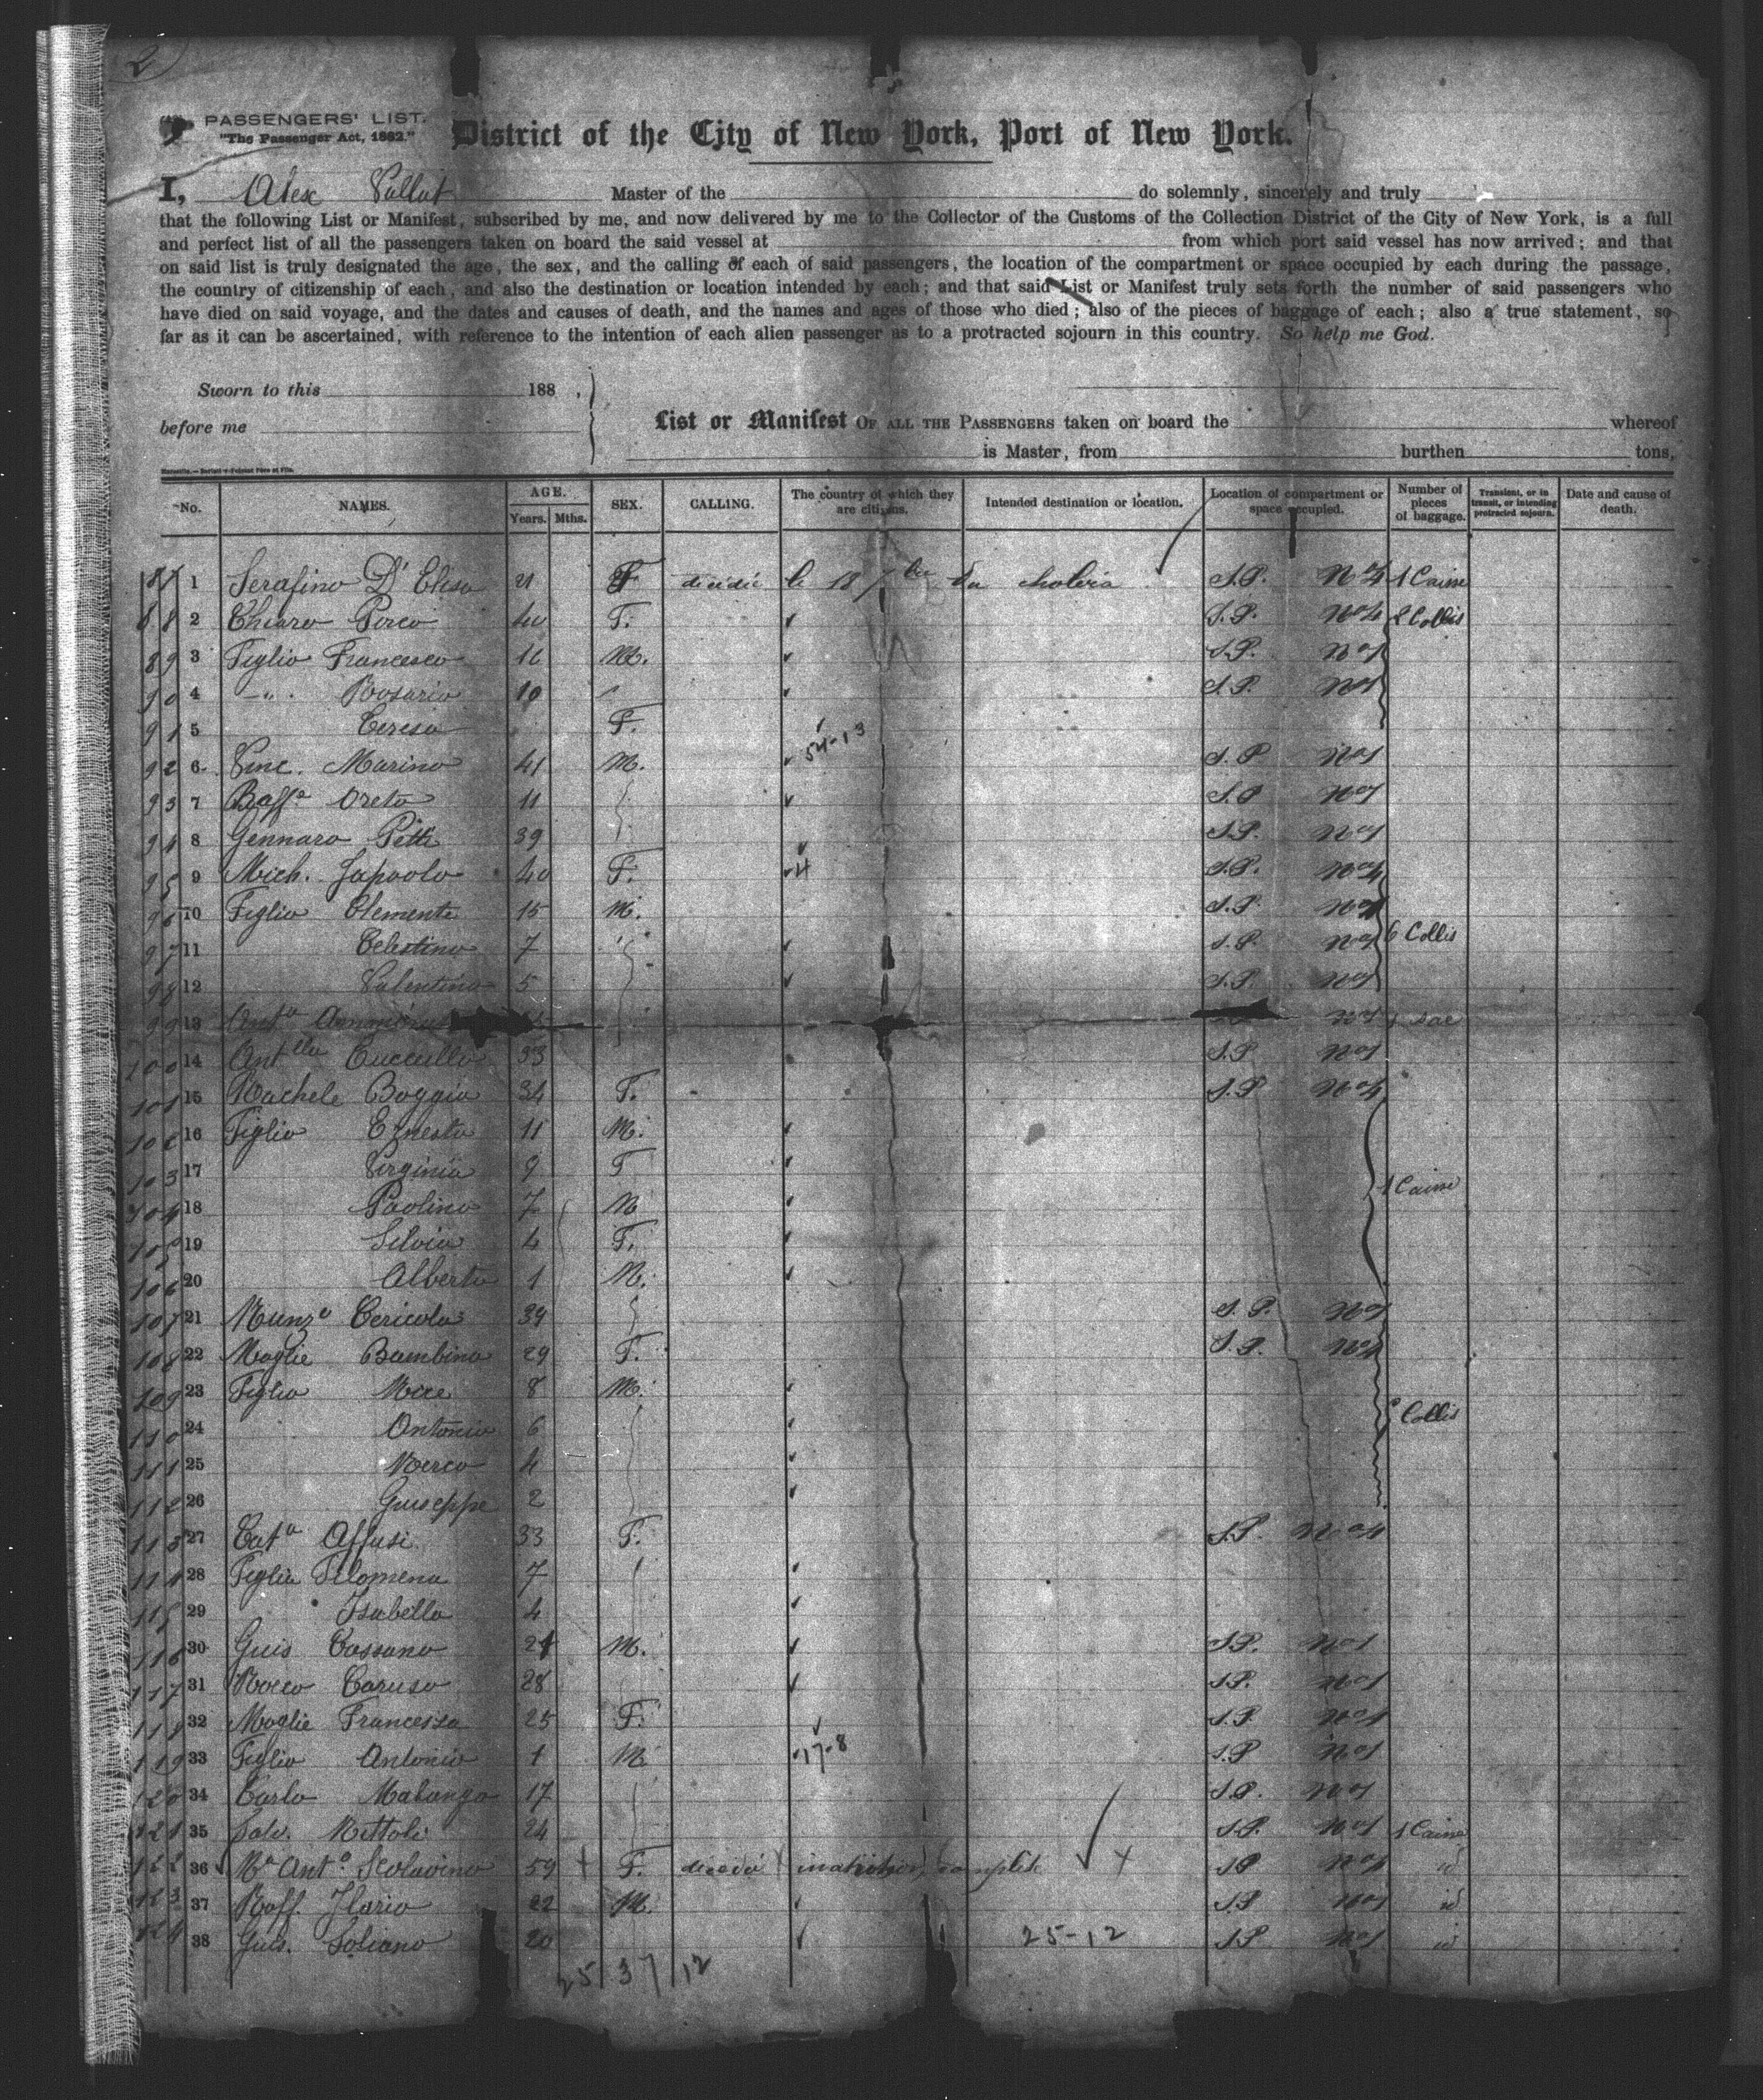 2
PASSENGERS' LIST.
"The Passenger Act, 1882."
District of the City of New York, Port of New York.
I, Alex Vallat Master of the do solemnly, sincerely and truly
that the following List or Manifest, subscribed by me, and now delivered by me to the Collector of the Customs of the Collection District of the City of New York, is a full
and perfect list of all the passengers taken on board the said vessel at from which port said vessel has now arrived; and that
on said list is truly designated the age, the sex, and the calling of each of said passengers, the location of the compartment or space occupied by each during the passage,
the country of citizenship of each, and also the destination or location intended by each; and that said List or Manifest truly sets forth the number of said passengers who
have died on said voyage, and the dates and causes of death, and the names and ages of those who died; also of the pieces of baggage of each; also a true statement, so
far as it can be ascertained, with reference to the intention of each alien passenger as to a protracted sojourn in this country. So help me God.
Sworn to this 188 ,
before me
List or Manifest OF ALL THE PASSENGERS taken on board the whereof
is Master, from burthen tons,
No. NAMES. AGE. Years. Mths. SEX. CALLING. The country of which they are citizens. Intended destination or location. Location of compartment or space occupied. Number of pieces of baggage. Transient, or in transit, or intending protracted sojourn. Date and cause of death.
87 1 Serafino D'Elisa 21 F décédé le 18 7bre du choléra S.P. No 4 1 Caisse
88 2 Chiara Porco 40 F. S.P. No 4 2 Collis
89 3 Figlio Francesco 16 M. S.P. No 1
90 4 " Rosario 10 S.P. No 1
91 5 Teresa F.
54-13
92 6 Vinc. Marino 41 M. S.P. No 1
93 7 Raffe Oreto 11 S.P. No 1
94 8 Gennaro Petti 39 S.P. No 1
95 9 Mich. Japaolo 40 F. 4 S.P. No 4
96 10 Figlio Clemente 15 M. S.P. No 1
97 11 Celestino 7 S.P. No 1 6 Collis
98 12 Valentino 5 S.P. No 1
99 13 Anta No 1 1 sac
100 14 Antlla Cuccullo 33 S.P. No 1
101 15 Rachele Boggia 34 F. S.P. No 4
102 16 Figlio Ernesto 11 M.
103 17 Virginia 9 F
104 18 Paolino 7 M 1 Caisse
105 19 Silvia 4 F.
106 20 Alberto 1 M.
107 21 Nunzo Cericola 39 S.P. No 1
108 22 Moglie Bambina 29 F. S.P. No 4
109 23 Figlio 8 M.
110 24 Antonio 6 Collis
111 25 4
112 26 Guiseppe 2
113 27 Cata Affusi 33 F. S.P. No 4
114 28 Figlia Filomena 7
115 29 Isabella 4
116 30 Guis Cassano 21 M. S.P. No 1
117 31 Rocco Caruso 28 S.P. No 1
118 32 Moglie Francesca 25 F. S.P. No 4
119 33 Figlio Antonio 1 M 17-8 S.P No 1
120 34 Carlo Malanga 17 S.P. No 1
121 35 Salv. Mittoli 24 S.P. No 1 1 Caisse
122 36 Ma Anta Scolavino 59 F. décédé inanition complète S.P No 4 id
123 37 Raff. Ilario 22 M. S.P No 1 id
124 38 Guis. Soliano 20 25-12 S.P No 1 id
25 37 12